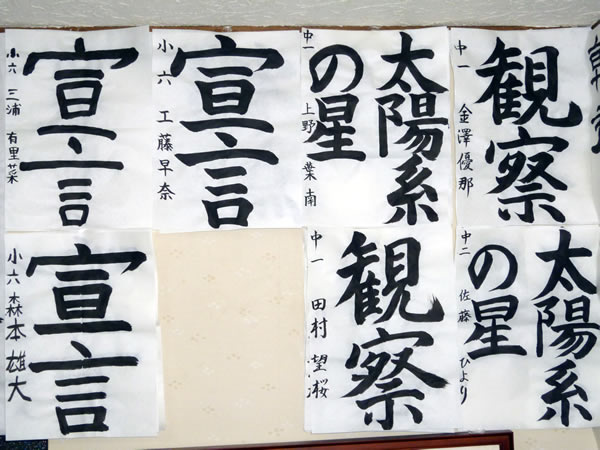 観察
中一 金澤優那
太陽系
の星
中一 上野 葉南
宣言
小六 工藤早奈
宣言
小六 三浦 有里菜
太陽系
の星
中二 佐藤 ひより
観察
中一 田村 望
宣言
小六 森本雄大